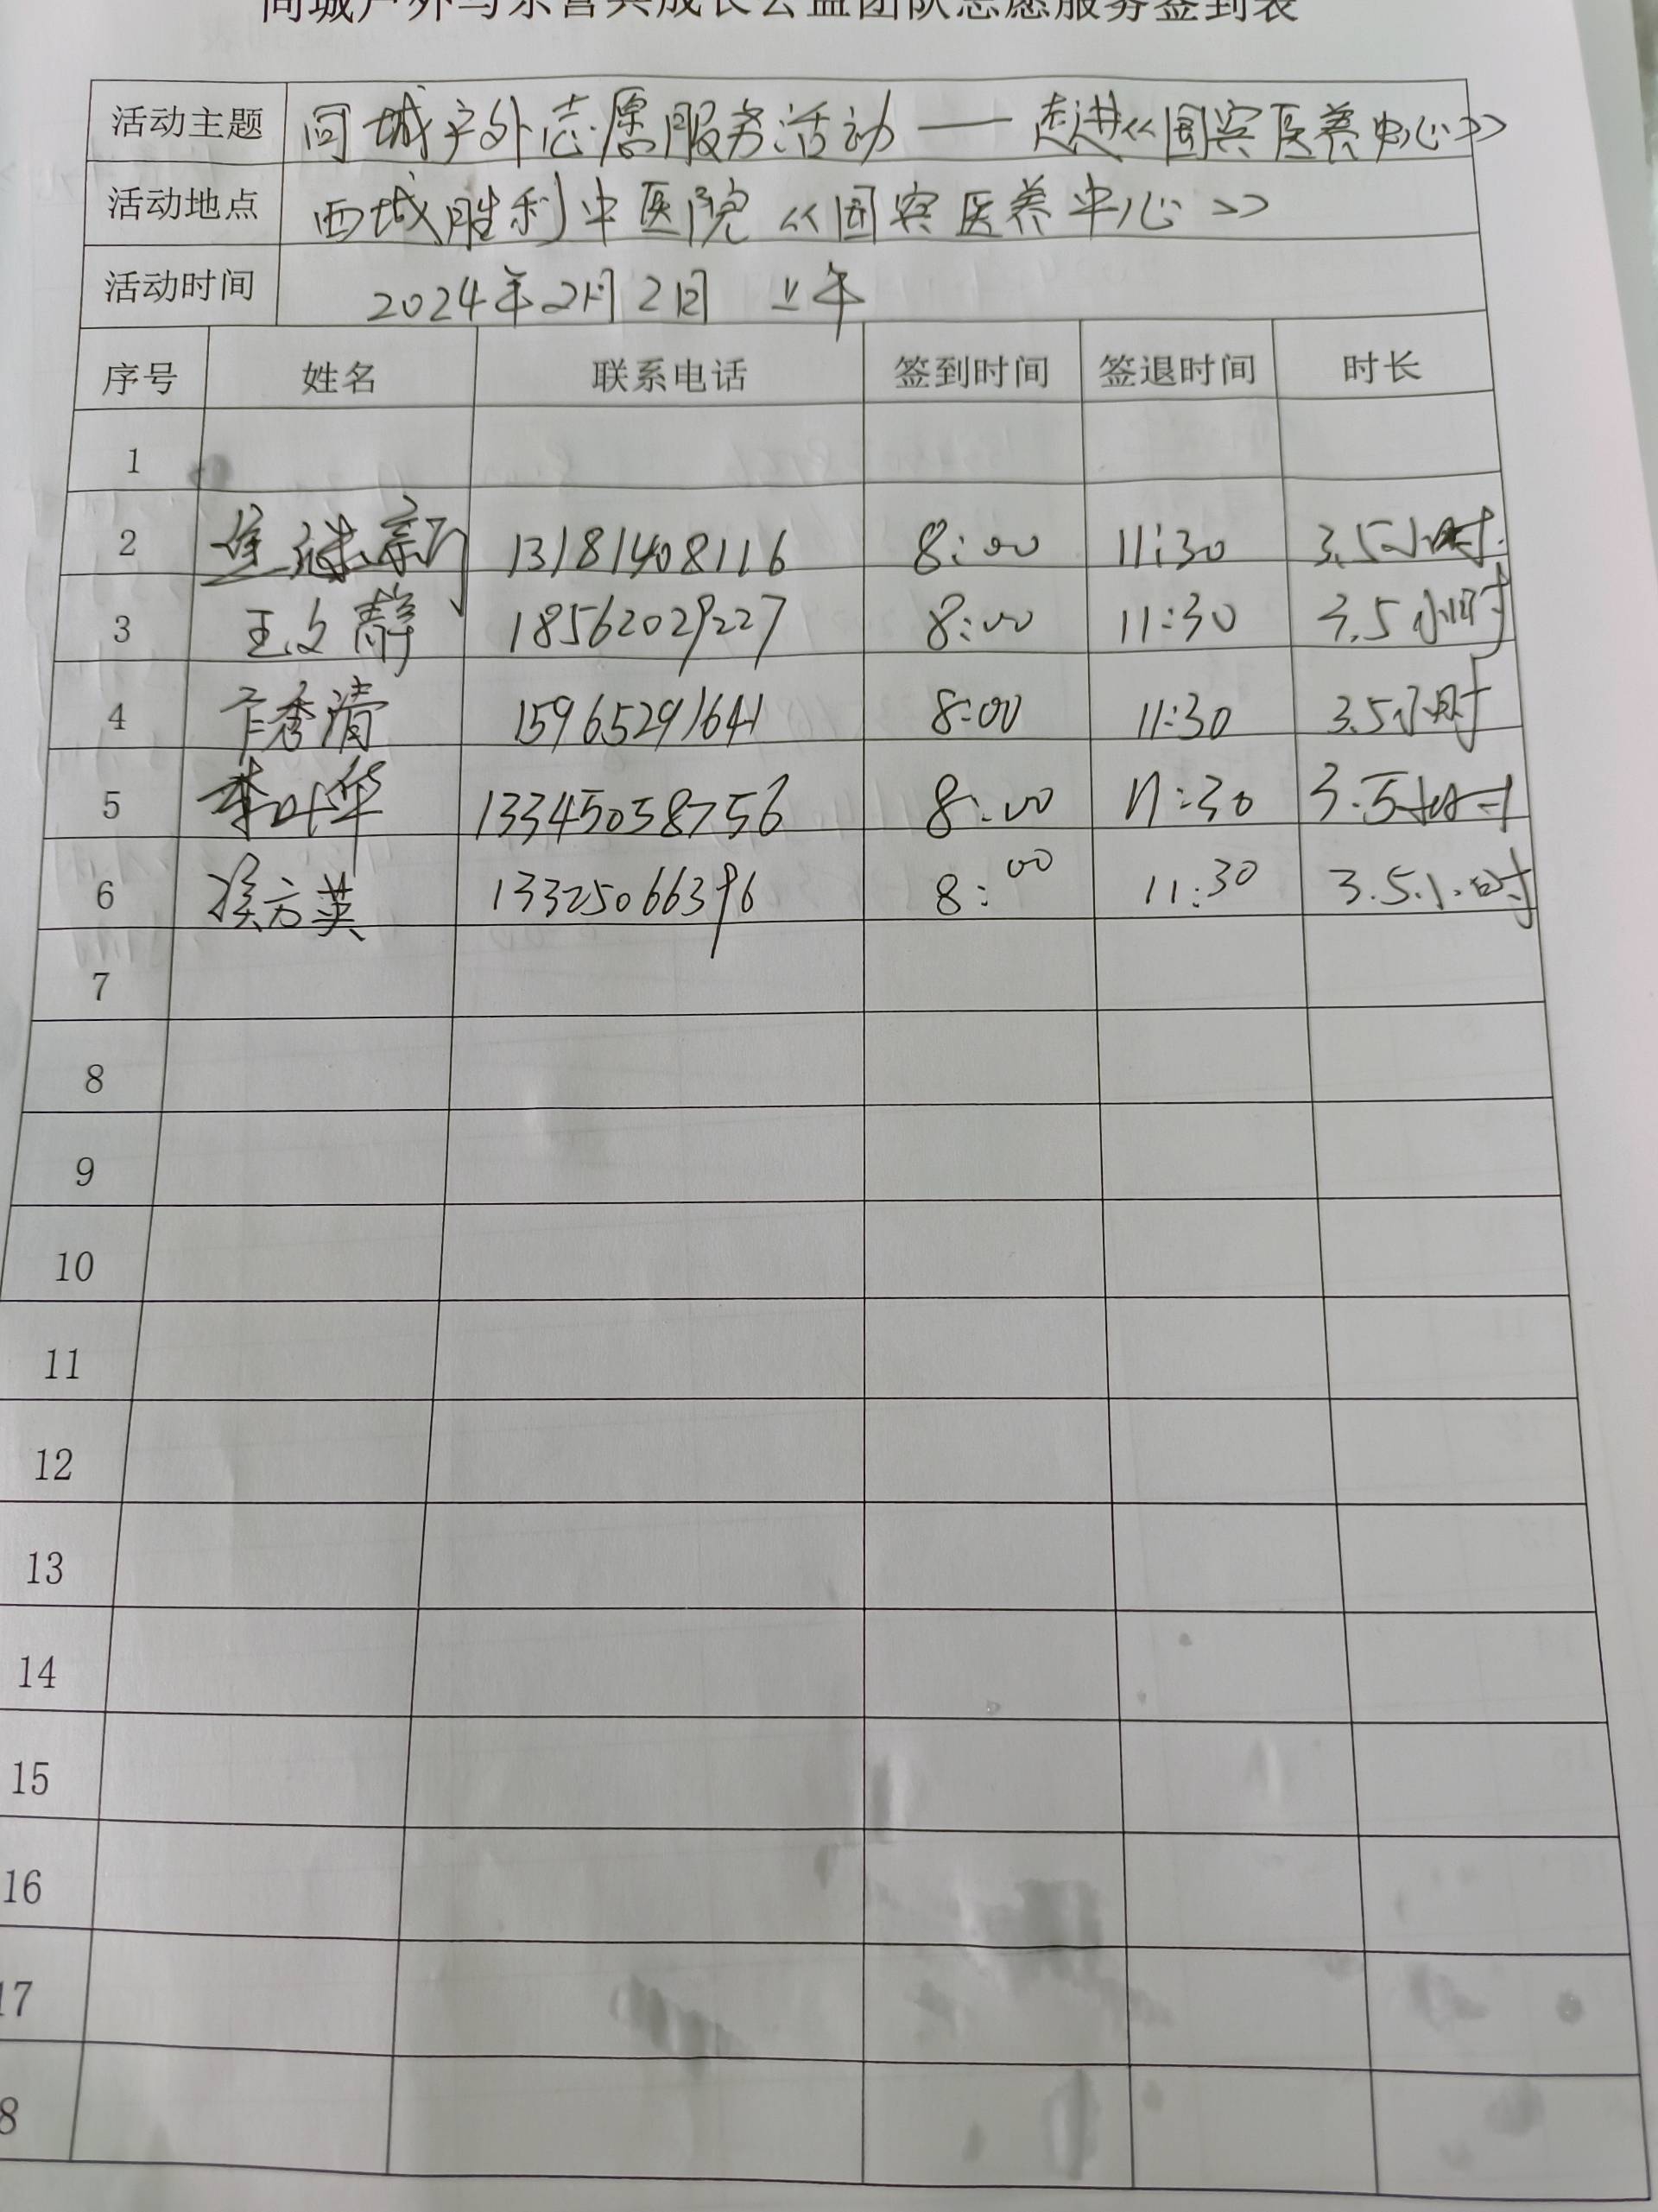 同城户外与东营共成长公益团队志愿服务签到表
活动主题 同城户外志愿服务活动——走进《国宾医养中心》
活动地点 西城胜利中医院《国宾医养中心》
活动时间 2024年2月2日 上午
序号 姓名 联系电话 签到时间 签退时间 时长
1
2 13181408116 8:00 11:30 3.5小时
3 王文静 18562029227 8:00 11:30 3.5小时
4 卞秀清 15965291641 8:00 11:30 3.5小时
5 李叶华 13345058756 8:00 11:30 3.5小时
6 侯方英 13325066396 8:00 11:30 3.5小时
7
8
9
10
11
12
13
14
15
16
17
8